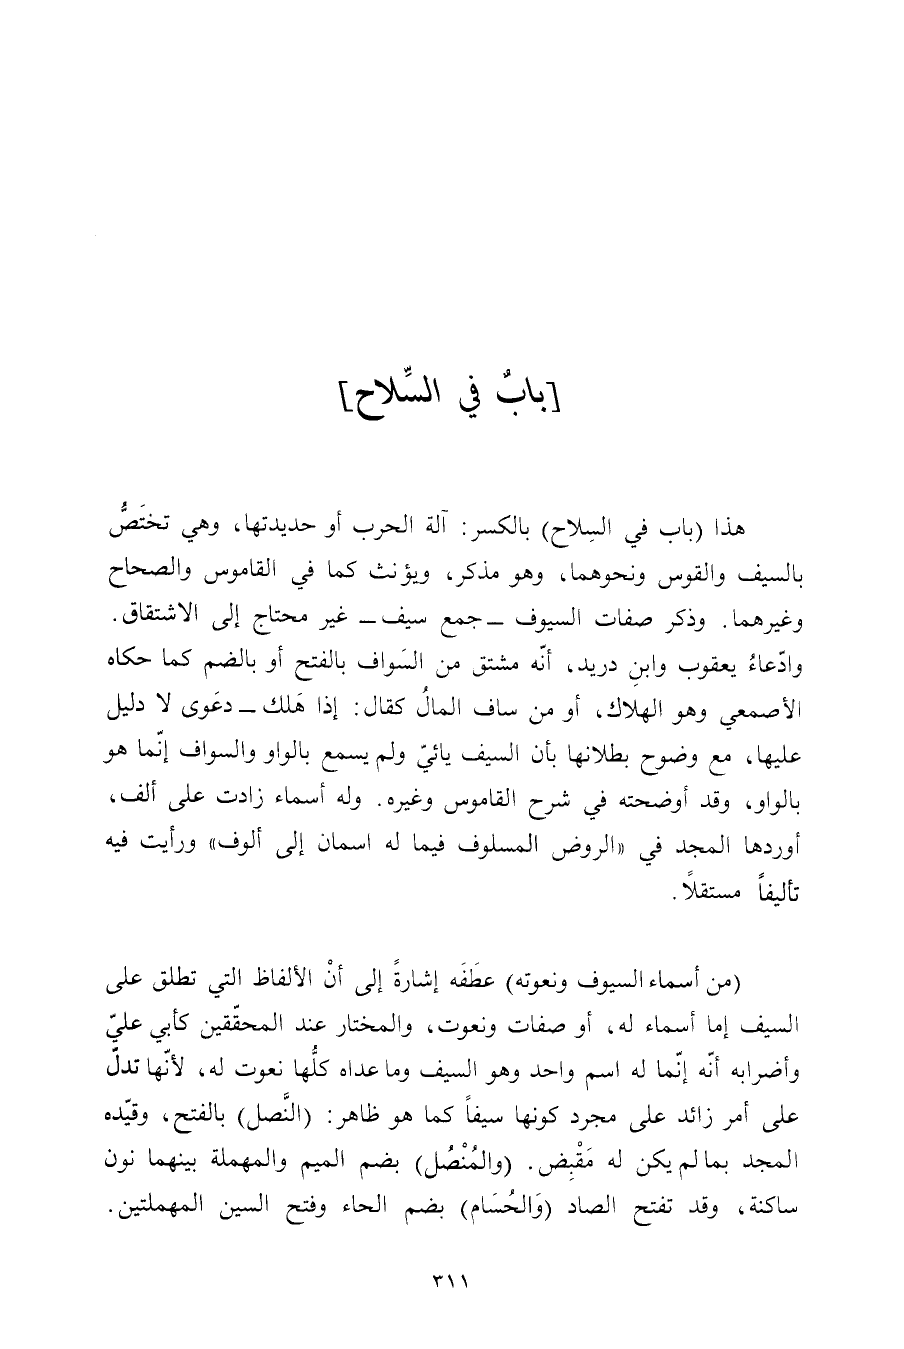 [بابٌ في السِّلاح]
هذا (باب في السِلاح) بالكسر: آلة الحرب أو حديدتها، وهي تختَصُّ
بالسيف والقوس ونحوهما، وهو مذكر، ويؤنث كما في القاموس والصحاح
وغيرهما. وذكر صفات السيوف ــ جمع سيف ــ غير محتاج إلى الاشتقاق.
وادّعاءُ يعقوب وابنِ دريد، أنّه مشتق من السَواف بالفتح أو بالضم كما حكاه
الأصمعي وهو الهلاك، أو من ساف المالُ كقال: إذا هَلك ــ دعَوى لا دليل
عليها، مع وضوح بطلانها بأن السيف يائيّ ولم يسمع بالواو والسواف إنّما هو
بالواو، وقد أوضحته في شرح القاموس وغيره. وله أسماء زادت على ألف،
أوردها المجد في «الروض المسلوف فيما له اسمان إلى ألوف» ورأيت فيه
تأليفاً مستقلاً.
(من أسماء السيوف ونعوته) عطَفَه إشارةً إلى أنْ الألفاظ التي تطلق على
السيف إما أسماء له، أو صفات ونعوت، والمختار عند المحقّقين كأبي عليّ
وأضرابه أنّه إنّما له اسم واحد وهو السيف وما عداه كلُّها نعوت له، لأنّها تدلّ
على أمر زائد على مجرد كونها سيفاً كما هو ظاهر: (النَّصل) بالفتح، وقيّده
المجد بما لم يكن له مَقْبِض. (والمُنْصُل) بضم الميم والمهملة بينهما نون
ساكنة، وقد تفتح الصاد (وَالحُسَام) بضم الحاء وفتح السين المهملتين.
٣١١